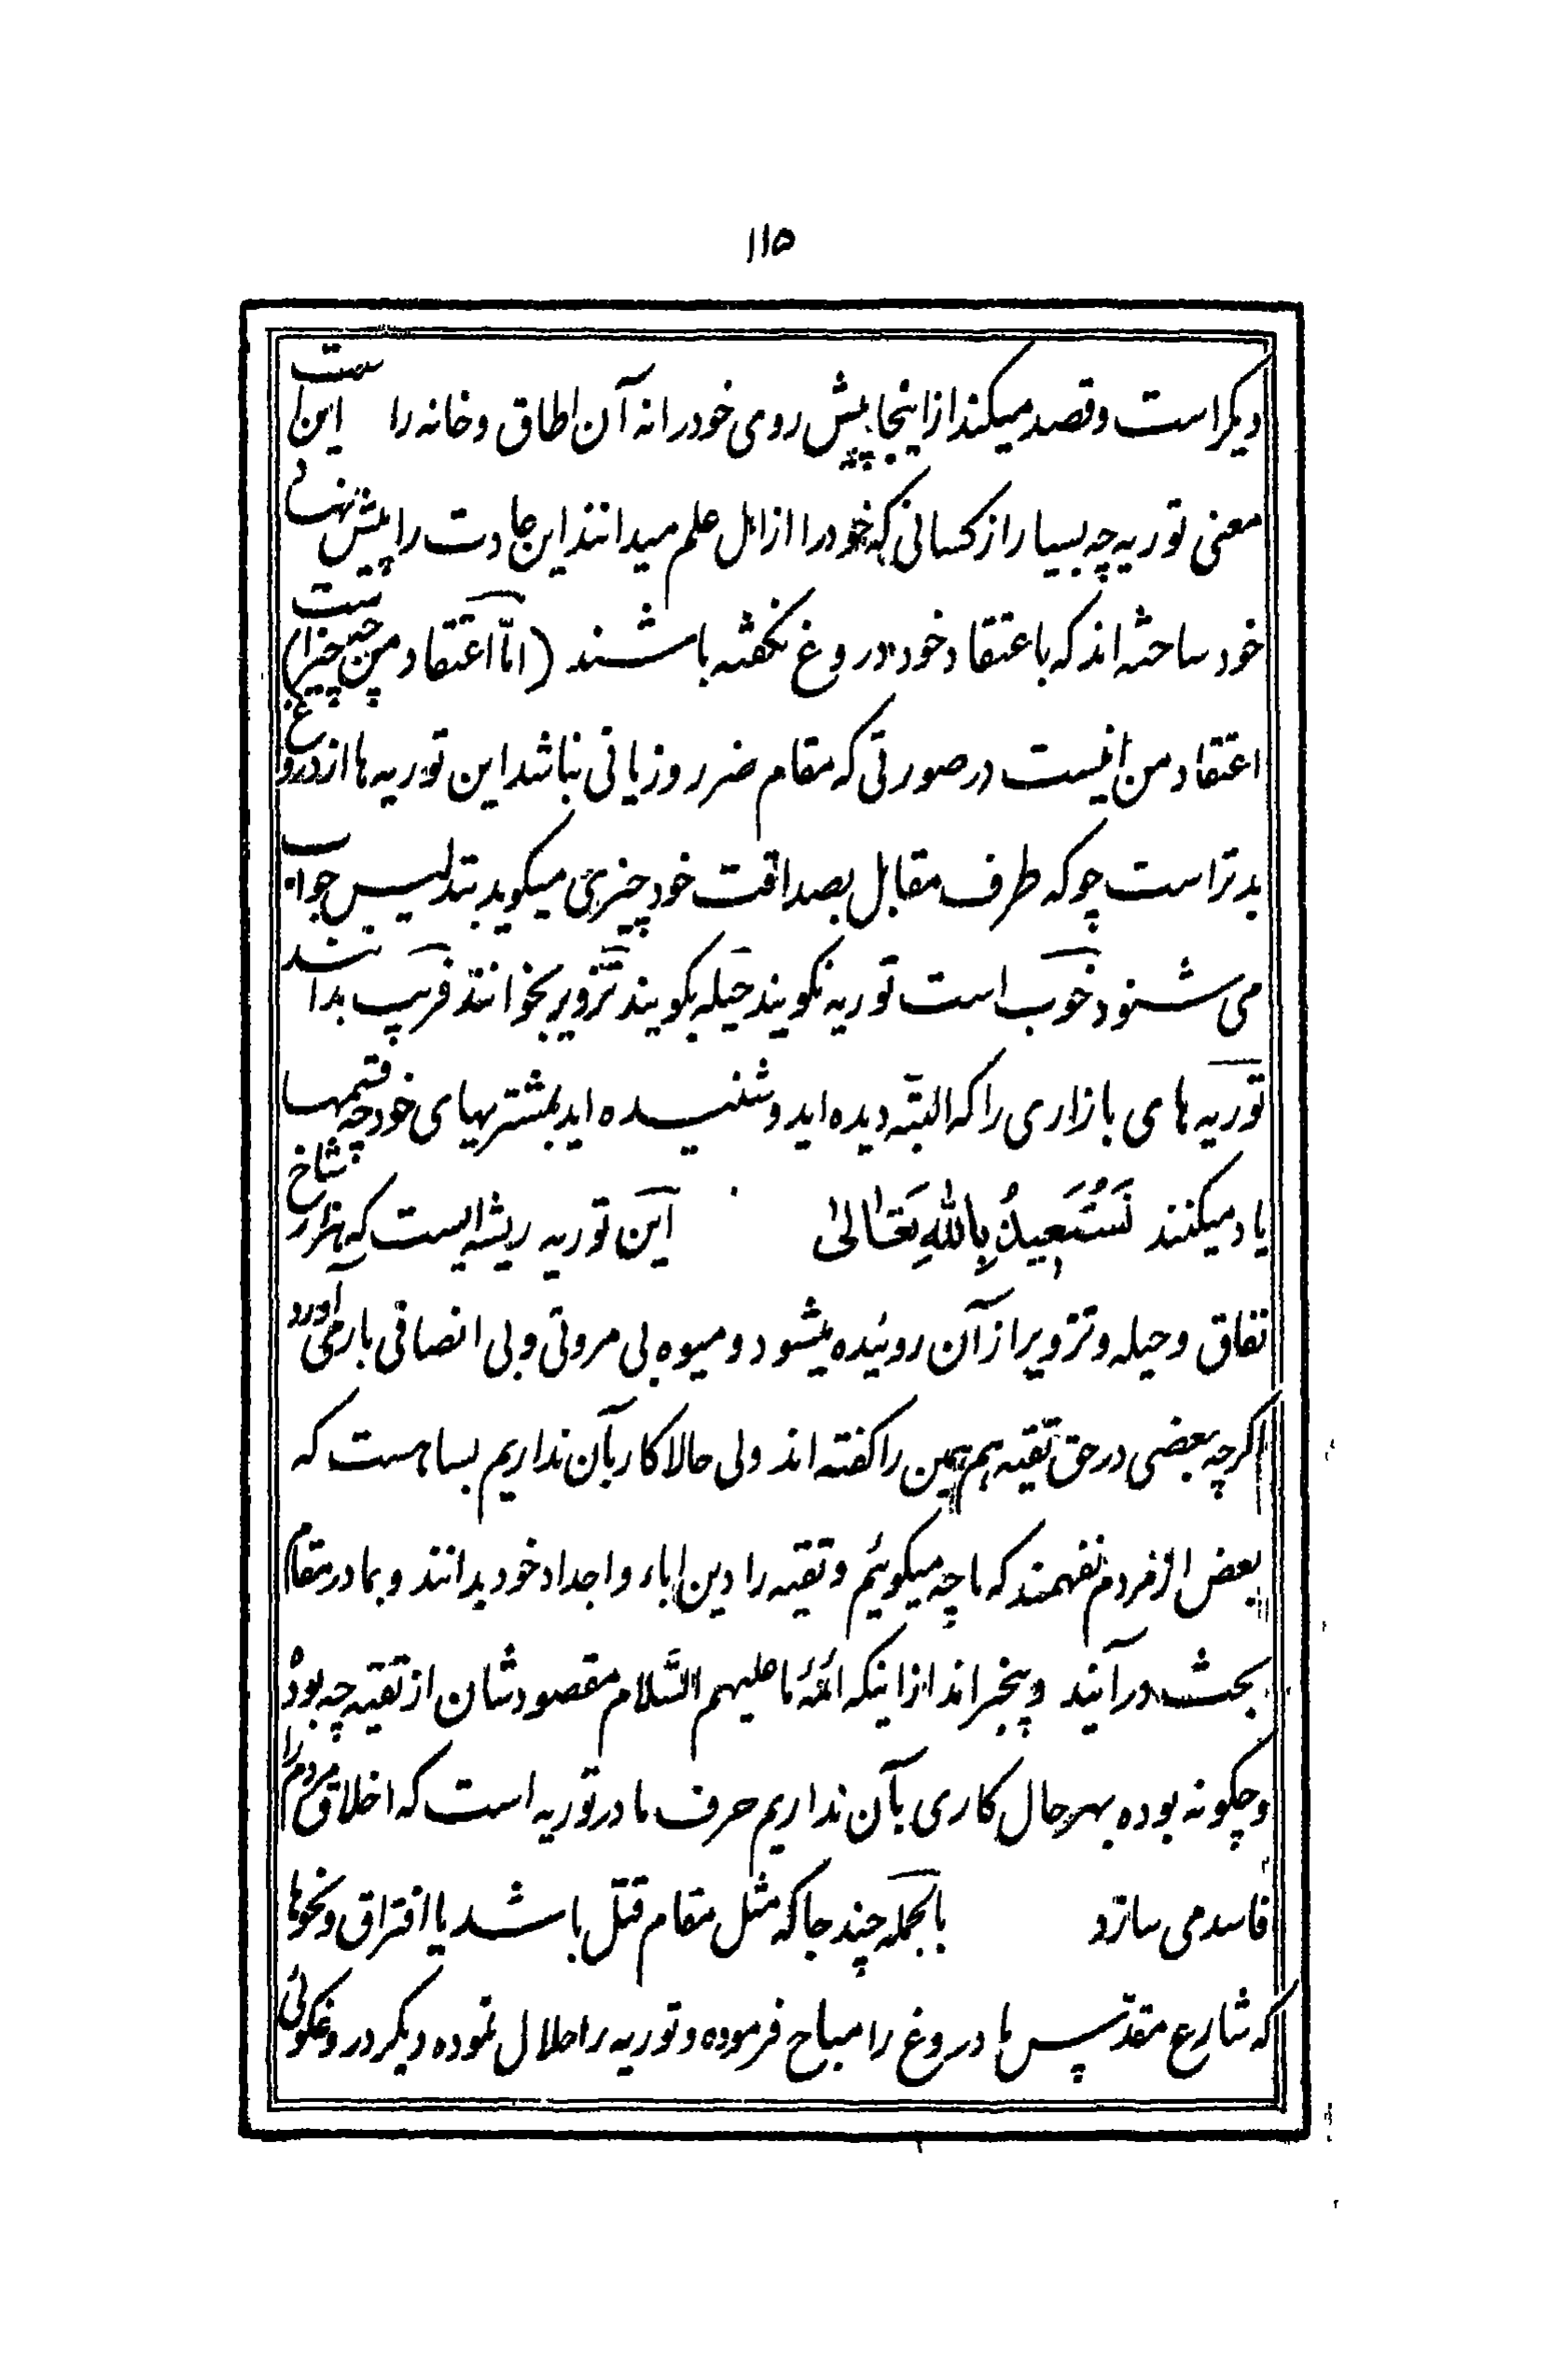 ۱۱۵
دیکر است و قصد میکند از اینجا پیش روی خود را نه آن اطاق و خانه را این است
معنی توریه چه بسیار از کسانی که خود را از اهل علم میدانند این عادت را پیش نهاد
خود ساخته اند که باعتقاد خود دروغ نکفته باشند (اما اعتقاد من چیست)
اعتقاد من اینست در صورتی که مقام ضرر و زیانی نباشد این توریه ها از دروغ
بدتر است چو که طرف مقابل بصداقت خود چیزی میکوید بتدلیس جواب
می شنود خوب است توریه نکویند حیله بکویند تزویر بخوانند فریب بدانند
توریه های بازاری را که البته دیده اید و شنیده اید بمشتریهای خود چه قسمها
یاد میکنند نَسْتَعیذُ بِاللّٰهِ تَعٰالیٰ این توریه ریشه ایست که هزار شاخ
نفاق و حیله و تزویر از آن روئیده میشود و میوه بی مروتی و بی انصافی بار می آورد
اکرچه بعضی در حق تقیه هم همین را کفته اند ولی حالا کار بآن نداریم بسا هست که
بعض از مردم نفهمند که ما چه میکوئیم و تقیه را دین اباء و اجداد خود بدانند و بما در مقام
بحث در آیند و بیخبر اند از اینکه ائمه ما علیهم السّلام مقصودشان از تقیه چه بود
و چکونه بوده بهر حال کاری بآن نداریم حرف ما در توریه است که اخلاق مردم را
فاسد می سازد بالجمله چند جا که مثل مقام قتل باشد یا افتراق و نحوها
که شارع مقدس ما دروغ را مباح فرموده و توریه را حلال نموده دیکر دروغکوئی